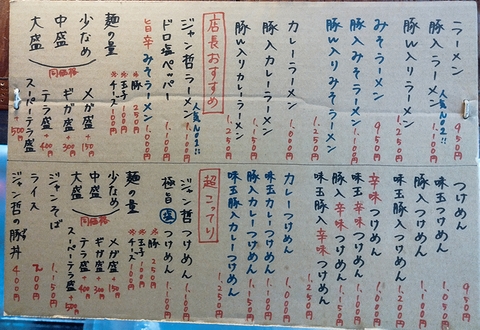 ラーメン 950円
豚入ラーメン 人気No2!! 1,100円
豚W入りラーメン 1,250円
みそラーメン 950円
豚入りみそラーメン 1,100円
豚W入りみそラーメン 1,250円
カレーラーメン 1,000円
豚入カレーラーメン
豚W入りカレーラーメン 1,250円
店長おすすめ
ジャン哲ラーメン 人気No1!! 1,100円
ドロ塩ペッパー 1,100円
旨辛みそラーメン 1,000円
※豚 250円
※玉子
※チーズ 100円
麺の量
少なめ
中盛
大盛
同価格
メガ盛 +150円
ギガ盛 +300円
テラ盛 +400円
スーパーテラ盛 +500円
つけめん 950円
味玉つけめん 1,050円
豚入つけめん 1,100円
味玉豚入つけめん 1,200円
辛味つけめん
味玉辛味つけめん
豚入辛味つけめん
味玉豚入辛味つけめん 1,250円
カレーつけめん 1,000円
味玉カレーつけめん
豚入りカレーつけめん
味玉豚入カレーつけめん 1,250円
超こってり
ジャン哲つけめん 1,100円
極旨塩つけめん 1,100円
※豚 250円
※玉子
※チーズ 100円
麺の量
少なめ
中盛
大盛
同価格
メガ盛 +150円
ギガ盛 +300円
テラ盛 +400円
スーパーテラ盛 +500円
ジャンそば 1,150円
ライス 200円
ジャン哲の豚丼 400円